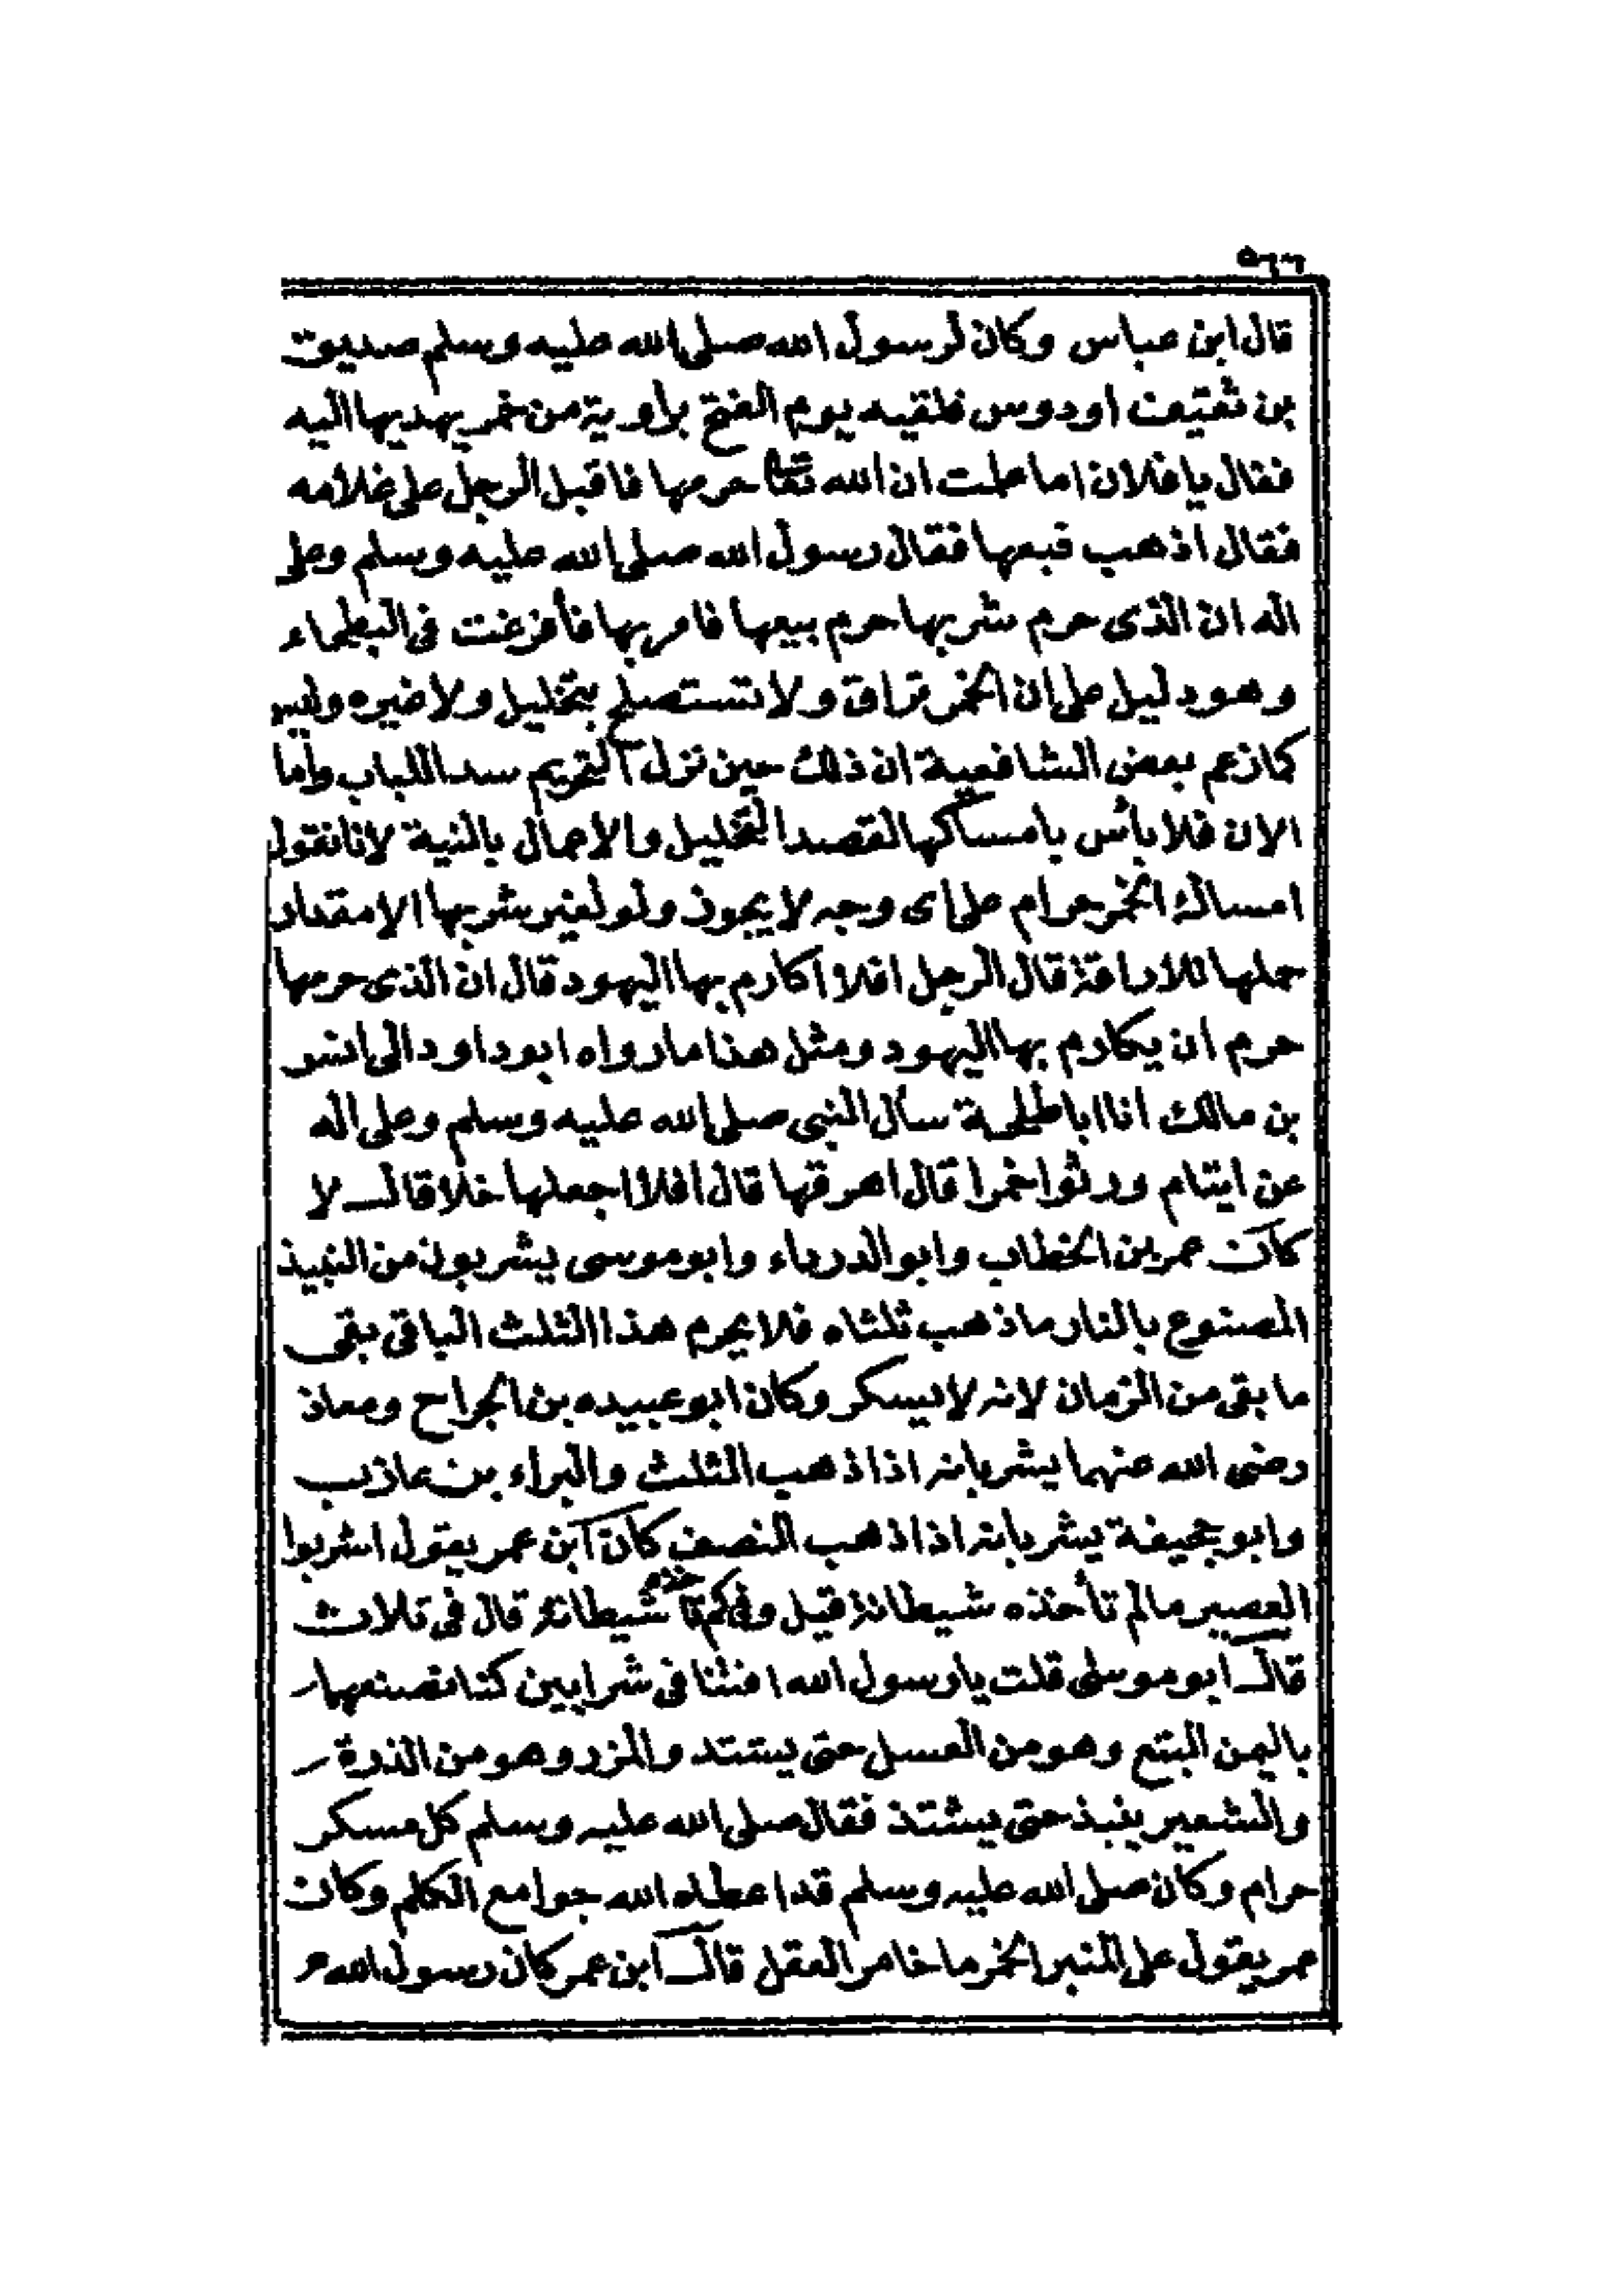 قال ابن عباس وكان لرسول الله صلى الله عليه وسلم صديق
من ثقيف اودوس فلقيه يوم الفتح براوية من خمر يهديها اليه
فقال يا فلان اما علمت ان الله تعا حرمها فاقبل الرجل على غلامه
فقال اذهب فبعها فقال رسول الله صلى الله عليه وسلم وعلى
اله ان الذى حرم شربها حرم بيعها فامر بها فأفرغت فى البطحاء
وهو دليل على ان الخمر تراق ولا تستصلح بتخليل ولا غيره وليس
كما زعم بعض الشافعية ان ذلك حين نزل التحريم سدا للباب وأما
الان فلا بأس بامساكها لقصد التخليل والاعمال بالنية لانا نقول
امساك الخمر حرام على اى وجه لا يجوز ولو لغير شربها الا مقدار
حملها للاراقة قال الرجل افلا اكارم بها اليهود قال ان الذى حرمها
حرم ان يكارم بها اليهود ومثل هذا ما رواه ابو داود الى انس
بن مالك ان ابا طلحة سأل النبى صلى الله عليه وسلم وعلى اله
عن ايتام ورثوا خمرا قال اهرقها قال افلا اجعلها خلا قال لا
كان عمر بن الخطاب وابو الدرداء وابو موسى يشربون من النبيذ
المصنوع بالنار ما ذهب ثلثاه فلا يحرم هذا الثلث الباقى بقى
ما بقى من الزمان لانه لا يسكر وكان ابو عبيده بن الجراح ومعاذ
رضى الله عنهما يشربانه اذا ذهب الثلث والبراء بن عازب
وابو جحيفة يشربانه اذا ذهب النصف كان ابن عمر يقول اشربوا
العصير ما لم تأخذه شيطانه قيل وفى كم شيطانه قال فى ثلاث
قال ابو موسى قلت يا رسول الله افتنا فى شرابين كنا نصنعهما
باليمن البتع وهو من العسل حتى يشتد والمزر وهو من الذرة
والشعير ينبذ حتى يشتد فقال صلى الله عليه وسلم كل مسكر
حرام وكان صلى الله عليه وسلم قد اعطاه الله جوامع الكلم وكان
عمر يقول على المنبر الخمر ما خامر العقل قال ابن عمر كان رسول الله